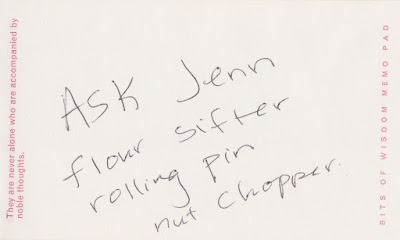 They are never alone who are accompanied by
noble thoughts.
ASK Jenn
flour sifter
rolling pin
nut chopper.
BITS OF WISDOM MEMO PAD